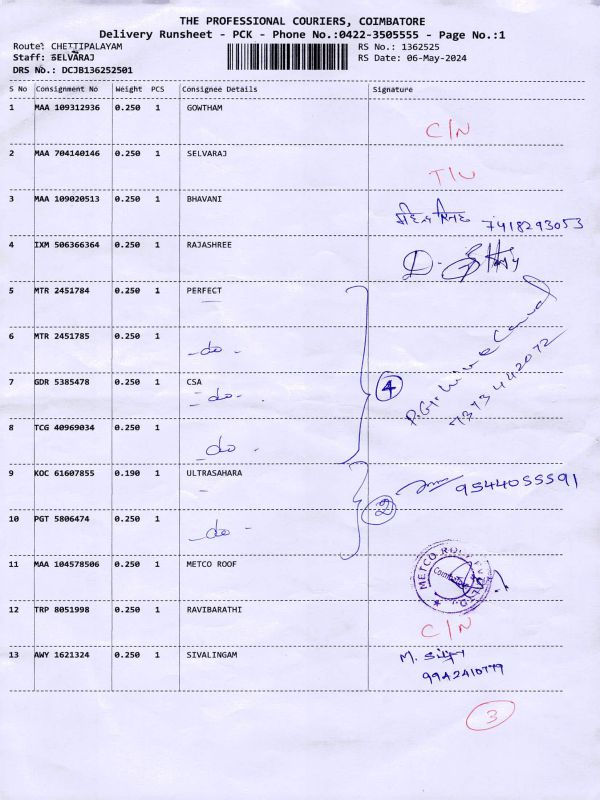 THE PROFESSIONAL COURIERS, COIMBATORE
Delivery Runsheet - PCK - Phone No.:0422-3505555 - Page No.:1
Route: CHETTIPALAYAM RS No.: 1362525
Staff: SELVARAJ RS Date: 06-May-2024
DRS No.: DCJB136252501
S No Consignment No Weight PCS Consignee Details Signature
1 MAA 109312936 0.250 1 GOWTHAM
C/N
2 MAA 704140146 0.250 1 SELVARAJ
T/U
3 MAA 109020513 0.250 1 BHAVANI
7418293053
4 IXM 506366364 0.250 1 RAJASHREE
D.
5 MTR 2451784 0.250 1 PERFECT
6 MTR 2451785 0.250 1
-do-
7 GDR 5385478 0.250 1 CSA
-do- 4
8 TCG 40969034 0.250 1
-do-
9 KOC 61607855 0.190 1 ULTRASAHARA
2 9544055591
10 PGT 5806474 0.250 1
-do-
11 MAA 104578506 0.250 1 METCO ROOF
METCO
12 TRP 8051998 0.250 1 RAVIBARATHI
C/N
13 AWY 1621324 0.250 1 SIVALINGAM
M.
9942410779
3